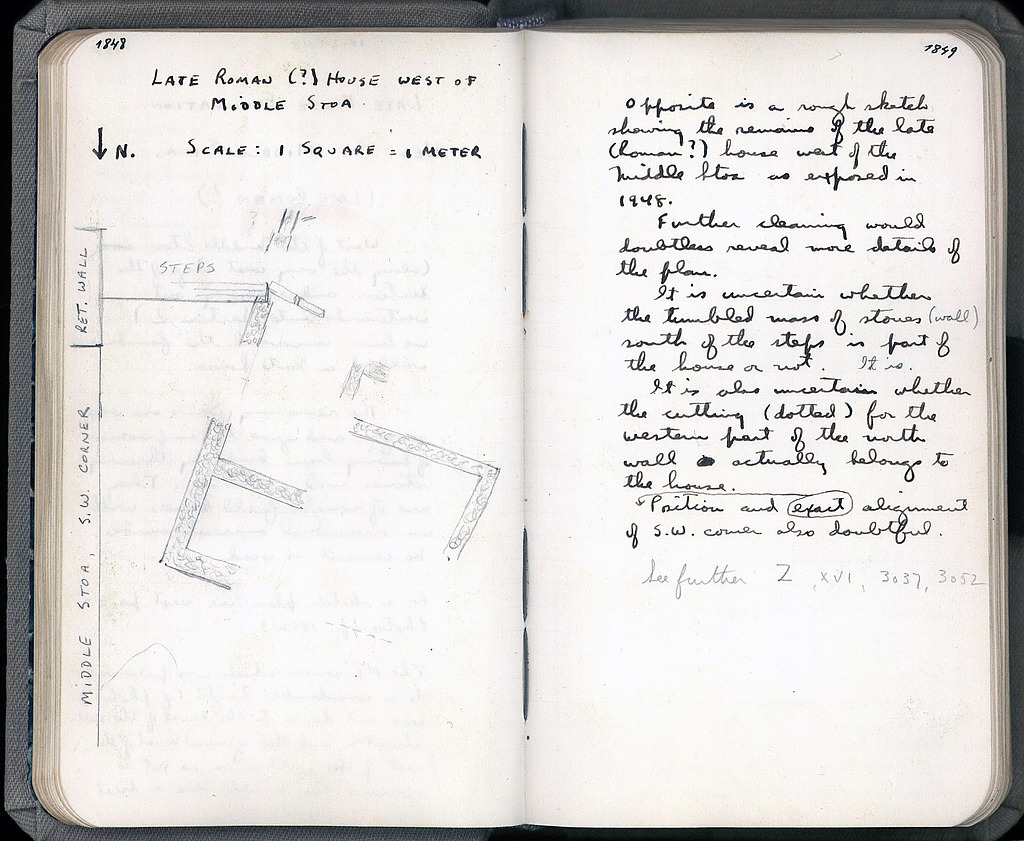 1848
LATE ROMAN (?) HOUSE WEST OF
MIDDLE STOA.
N. SCALE: 1 SQUARE = 1 METER
STEPS
RET. WALL
MIDDLE STOA, S.W. CORNER
1849
Opposite is a rough sketch
showing the remains of the late
(Roman?) house west of the
Middle Stoa as exposed in
1948.
Further cleaning would
doubtless reveal more details of
the plan.
It is uncertain whether
the tumbled mass of stones (wall)
south of the steps is part of
the house or not. It is.
It is also uncertain whether
the cutting (dotted) for the
western part of the north
wall actually belongs to
the house.
Position and exact alignment
of S.W. corner also doubtful.
See further Z XVI, 3037, 3052